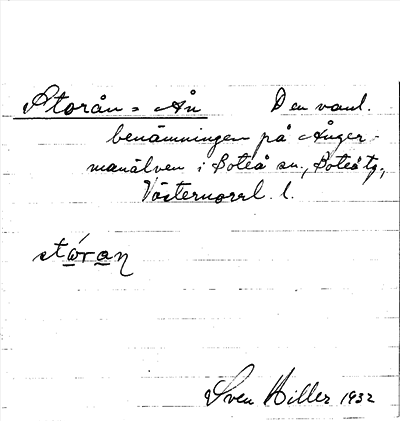 Storån = Ån Den vanl.
benämningen på Ånger-
manälven i Boteå sn., Boteå tg.,
Västernorrl. l.
stó̱ra̱ŋ
Sven Hiller 1932